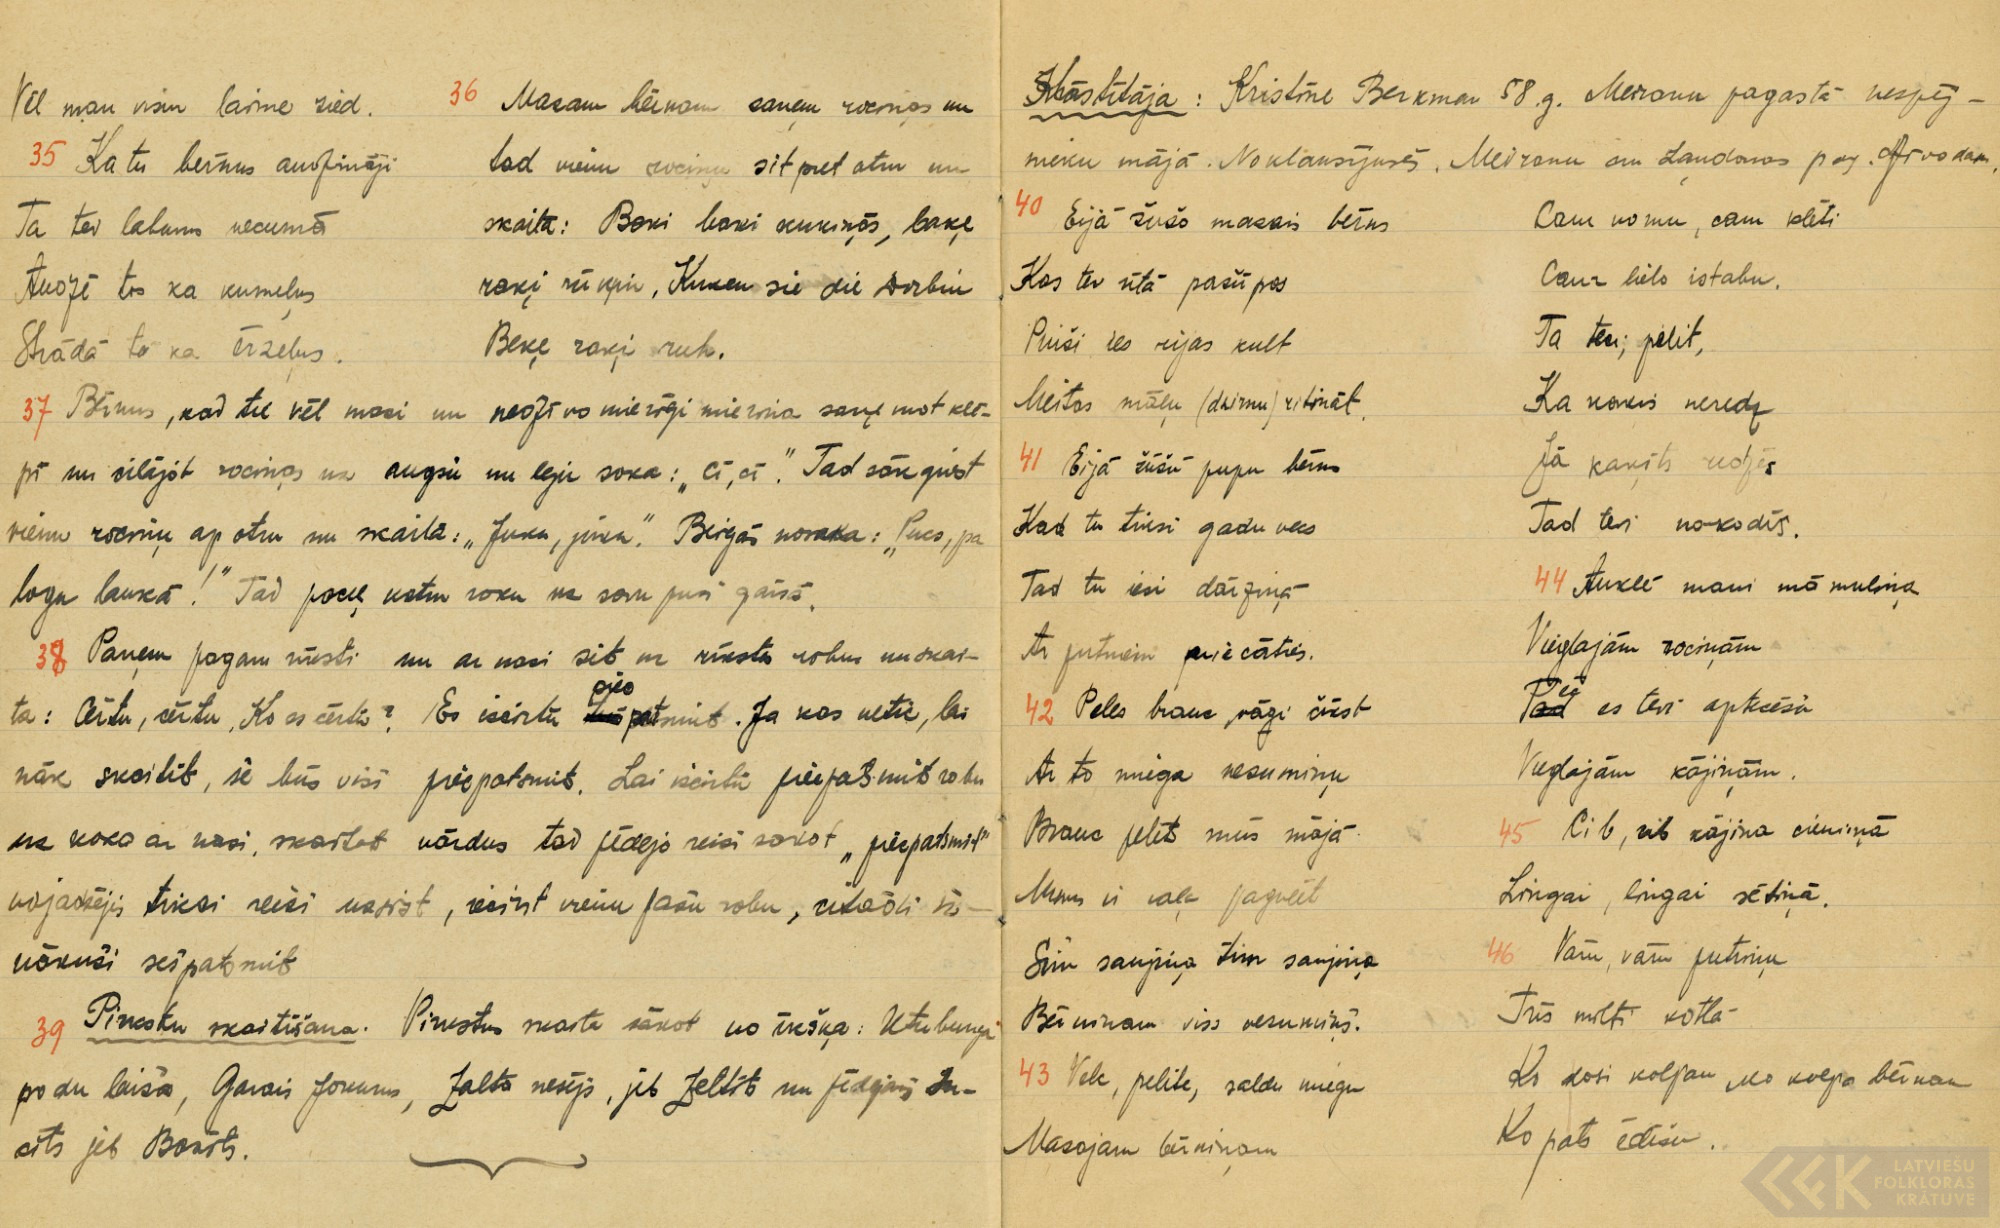 Vēl man visu laime zied.
35 Ka tu bērnus auofināji
Ta tev labums vecumā
Auofē tos ka kumeļus
Strādā to ka ērzeļus.
36 Mazam bērnam saņem rociņas un
tad vienu rociņu sit pret otru un
skaita: Baķi baķi kukiņās, bakķe
raķi rūķin, Kuken sie die Dorbin
Beķe raķi ruh.
37 Bērnus, kad tie vēl mazi un neofīvo mierīgi mierina saņemot klē-
pī un cilājot rociņas uz augšu un leju soka: „Cī, cī". Tad sāk griezt
vienu rociņu ap otru un skaita: „Juka, jūka". Beigās nosaka: „Pucs, pa
logu laukā!" Tad paceļ katru roku uz savu pusi gaisā.
38 Paņem pagaru rīksti un ar nazi sit uz rīksta robus un skai-
ta: Cērtu, cērtu, Ko es cērtu? Es iecirtu piecpatsmit. Ja kas netic, lai
nāk skaitīt, še būs visi piecpatsmit. Lai iecirtu piecpatsmit robu
uz koka ar nazi, skaitot vārdus tad pēdējo reizi sakot „piecpatsmit"
vajadzējis trīsi reizi uzsist, iecirst vienu pašu robu, citādi iz-
nākuši sešpatsmit
39 Pirkstu skaitīšana. Pirkstus skaita sākot no īkšķa: Utubungi
podu laiža, Garais Jokums, Zalta nesējs, jeb Zeltīts un pēdējais In-
cīts jeb Bozīts.
Stāstītāja: Kristīne Berkman 58.g. Meiranu pagastā nespēj-
nieku mājā. Noklausījusēs, Meiranu un Ļaudonas pag.
40 Eijā žužo mazais bērns
Kas tev rītā pašūpos
Puiši ies rijas kult
Meitas māļu (dzirnu) ritināt.
41 Eijā žūžū pupu bērns
Kad tu tiksi gadu vecs
Tad tu iesi dārziņā
Ar putniem priecāties.
42 Peles brauc, vāģi čīkst
Ar to miega vezumiņu
Brauc pelīt mūs mājā
Mums ir vaļa pagulēt
Šim saujiņa tim saujiņa
Bērniņam viss vezumiņš.
43 Velc, pelīte, saldu miegu
Mazajam bērniņam
Caur nomu, caur klēti
Caur lielo istabu.
Ta teci, pelīt,
Ka kaķis neredz
Jā kaķīts redzēs
Tad tevi nokodīs.
44 Auklē mani māmuliņa
Vieglajām rociņām
Pēc es tevi aptecēšu
Vieglajām kājiņām.
45 Cib, cib kājiņa ciemiņā
Lingai, lingai sētiņā.
46 Vāru, vāru putriņu
Trīs milti katlā
Ko dosi kalpam, ko kalpa bērnam
Ko pats ēdīšu.
LATVIEŠU
FOLKLORAS
KRĀTUVE